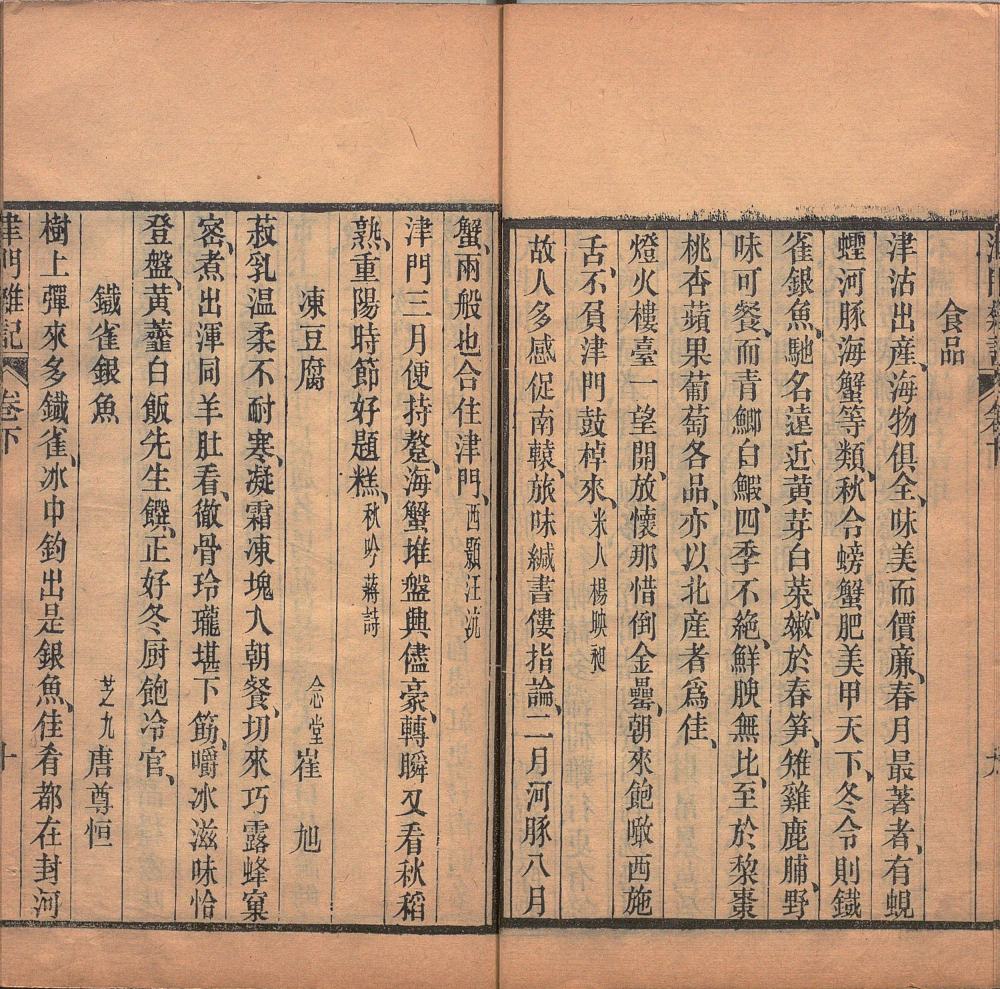 食品
津沽出産、海物俱全、味美而價廉、春月最著者、有蜆
蟶河豚海蟹等類、秋令螃蟹肥美甲天下、冬令則鐵
雀銀魚、馳名遠近黄芽白菜、嫩於春笋、雉雞鹿脯、野
味可餐、而青鯽白鰕、四季不絶、鮮腴無比、至於黎棗
桃杏蘋果葡萄各品、亦以北産者爲佳、
燈火樓臺一望開、放懷那惜倒金罍、朝來飽噉西施
舌、不負津門鼓棹來、米人楊映昶
故人多感促南轅、旅味緘書僂指論、二月河豚八月
蟹、兩般也合住津門、西顥汪沆
津門三月便持螯、海蟹堆盤興儘豪、轉瞬又看秋稻
熟、重陽時節好題糕、秋吟蔣詩
凍豆腐 念堂崔旭
菽乳温柔不耐寒、凝霜凍塊入朝餐、切來巧露蜂窠
密、煮出渾同羊肚看、徹骨玲瓏堪下筯、嚼冰滋味恰
登盤、黄虀白飯先生饌、正好冬厨飽冷官、
鐵雀銀魚 芝九唐尊恒
樹上彈來多鐵雀、冰中釣出是銀魚、佳肴都在封河
津門雜記 卷下 十